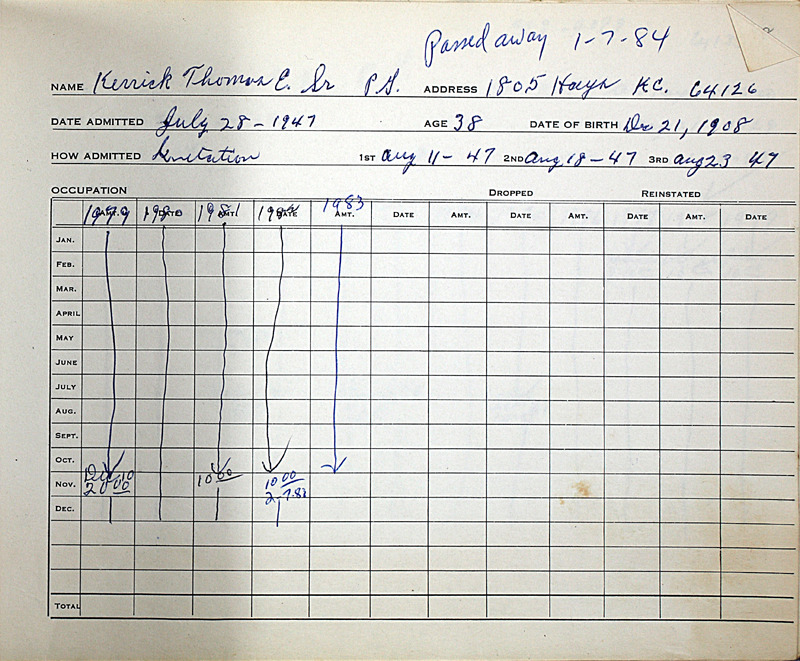 Passed away 1-7-84
NAME Kerrick Thomas E. Sr P.S. ADDRESS 1805 Hays KC. 64126
DATE ADMITTED July 28-1947 AGE 38 DATE OF BIRTH Dec 21, 1908
HOW ADMITTED Invitation 1ST Aug 11-47 2ND Aug 18-47 3RD Aug 23 47
OCCUPATION DROPPED REINSTATED
1979 1980 1981 1982 1983
AMT. DATE AMT. DATE AMT. DATE AMT. DATE AMT. DATE AMT. DATE
JAN.
FEB.
MAR.
APRIL
MAY
JUNE
JULY
AUG.
SEPT.
OCT.
Dec 10 10 00 10 00
NOV. 20 00 2-7-83
DEC.
TOTAL